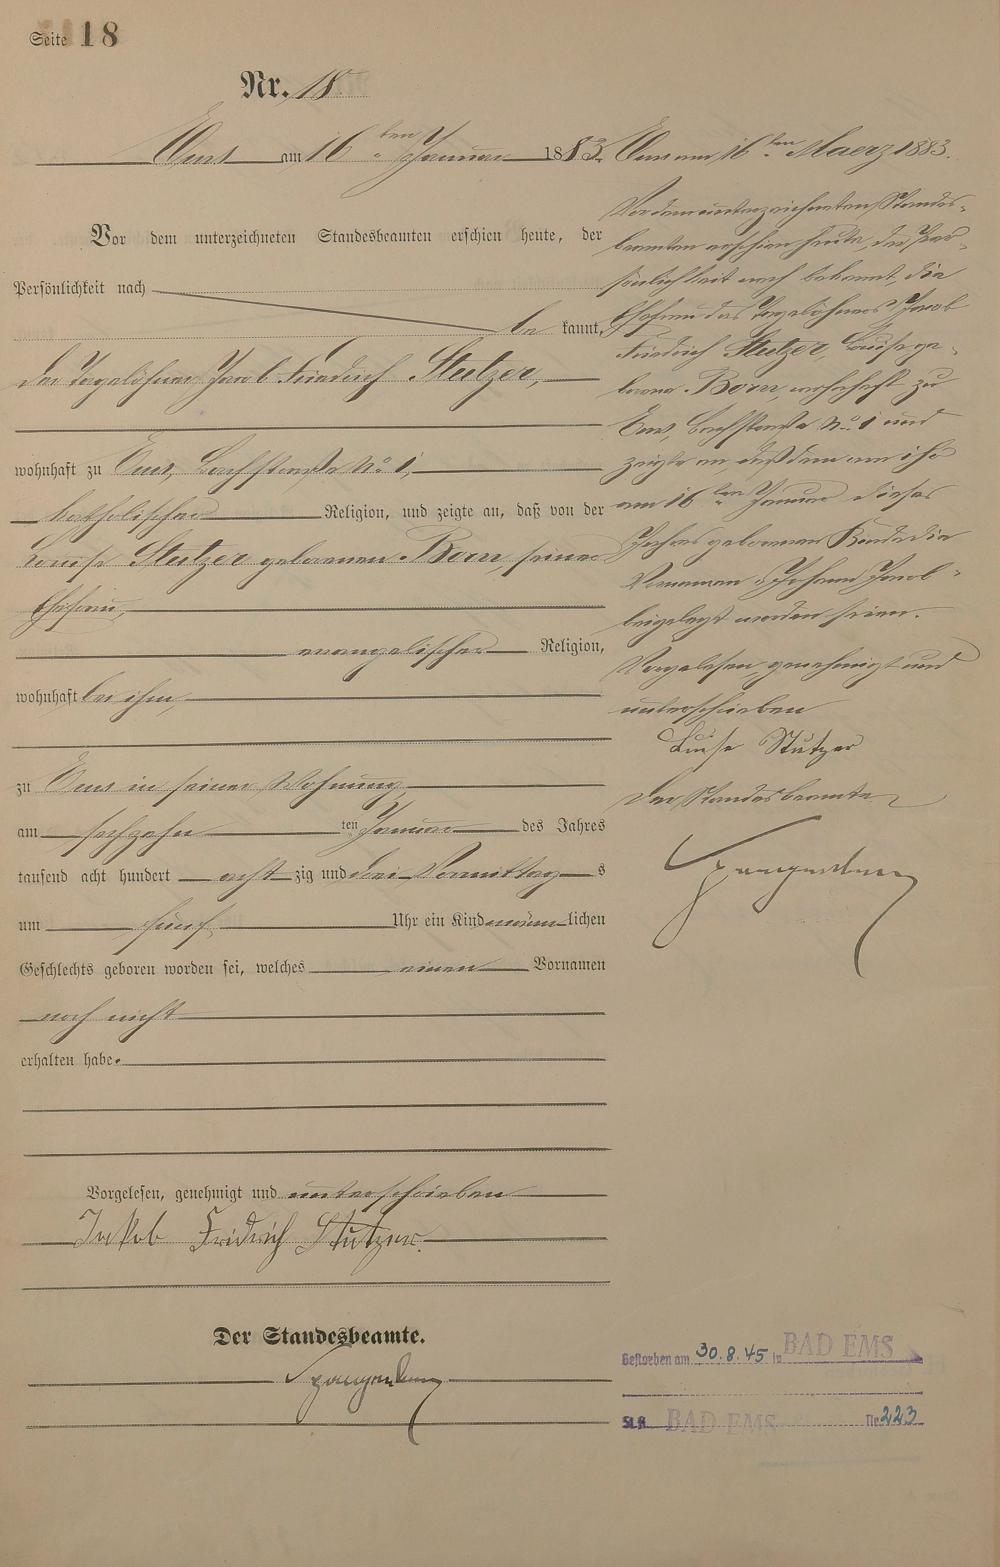 Seite 18
Nr. 18.
Ems am 16ten Januar 1883.
Vor dem unterzeichneten Standesbeamten erschien heute, der
Persönlichkeit nach
be kannt,
der Tagelöhner Jacob Friedrich Stutzer,
wohnhaft zu Ems, Bachstraße No. 1,
katholischer Religion, und zeigte an, daß von der
Louise Stutzer geborenen Born, seiner
Ehefrau,
evangelischer Religion,
wohnhaft bei ihm,
zu Ems in seiner Wohnung,
am sechzehn ten Januar des Jahres
tausend acht hundert acht zig und drei Vormittag s
um fünf Uhr ein Kind männ lichen
Geschlechts geboren worden sei, welches einen Vornamen
noch nicht
erhalten habe.
Vorgelesen, genehmigt und unterschrieben
Jakob Fridrich Stutzer.
Der Standesbeamte.
Spangenberg
Ems am 16ten Maerz 1883.
Vor dem unterzeichneten Standes-
beamten erschien heute, der Per-
sönlichkeit nach bekannt, die
Ehefrau des Tagelöhners Jacob
Friedrich Stutzer, Louise ge-
borene Born, wohnhaft zu
Ems, Bachstraße No. 1 und
zeigte an, daß dem am
am 16ten Januar dieses
Jahres geborenen Kinde die
Vornamen "Johann Jacob"
beigelegt worden seien.
Vorgelesen, genehmigt und
unterschrieben
Luise Stutzer
Der Standesbeamte
Spangenberg
Gestorben am 30.8.45 in BAD EMS
St.A. BAD EMS Nr. 223